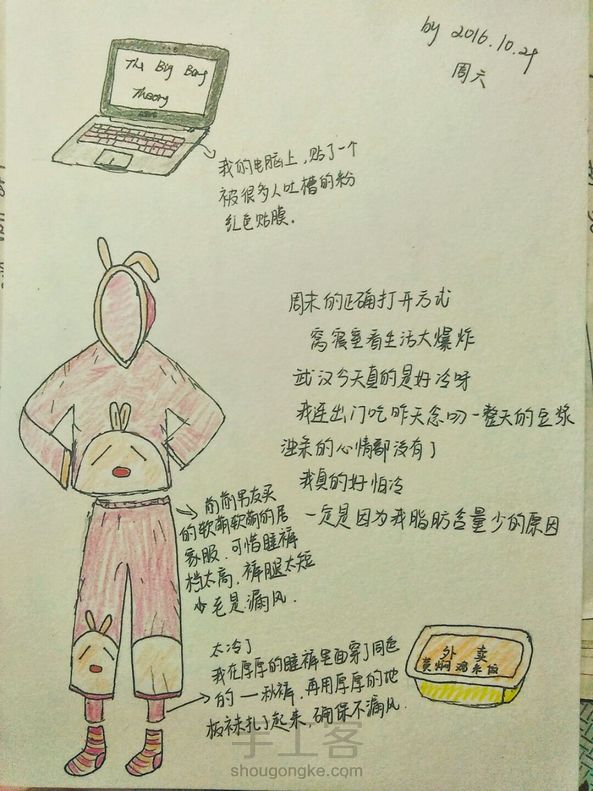 by 2016.10.29
周六
The Big Bang
Theory
我的电脑上，贴了一个
被很多人吐槽的粉
红色贴膜.
周末的正确打开方式
窝寝室看生活大爆炸
武汉今天真的是好冷呀
我连出门吃昨天念叨一整天的豆浆
油条的心情都没有了
我真的好怕冷
一定是因为我脂肪含量少的原因
前前男友买
的软萌软萌的居
家服.可惜睡裤
档太高.裤腿太短
少毛是漏风.
太冷了
我在厚厚的睡裤里面穿了同色
的一秋裤，再用厚厚的地
板袜扎了起来，确保不漏风.
外卖
黄焖鸡米饭
手工客
shougongke.com